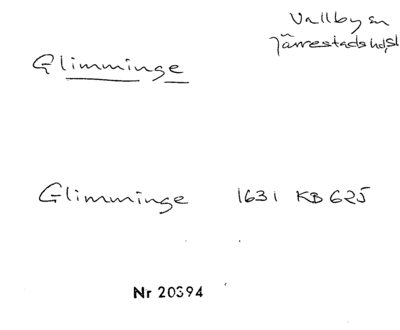 Vallby sn
Järrestads hd, sk
Glimminge
Glimminge 1631 KB 625
Nr 20394